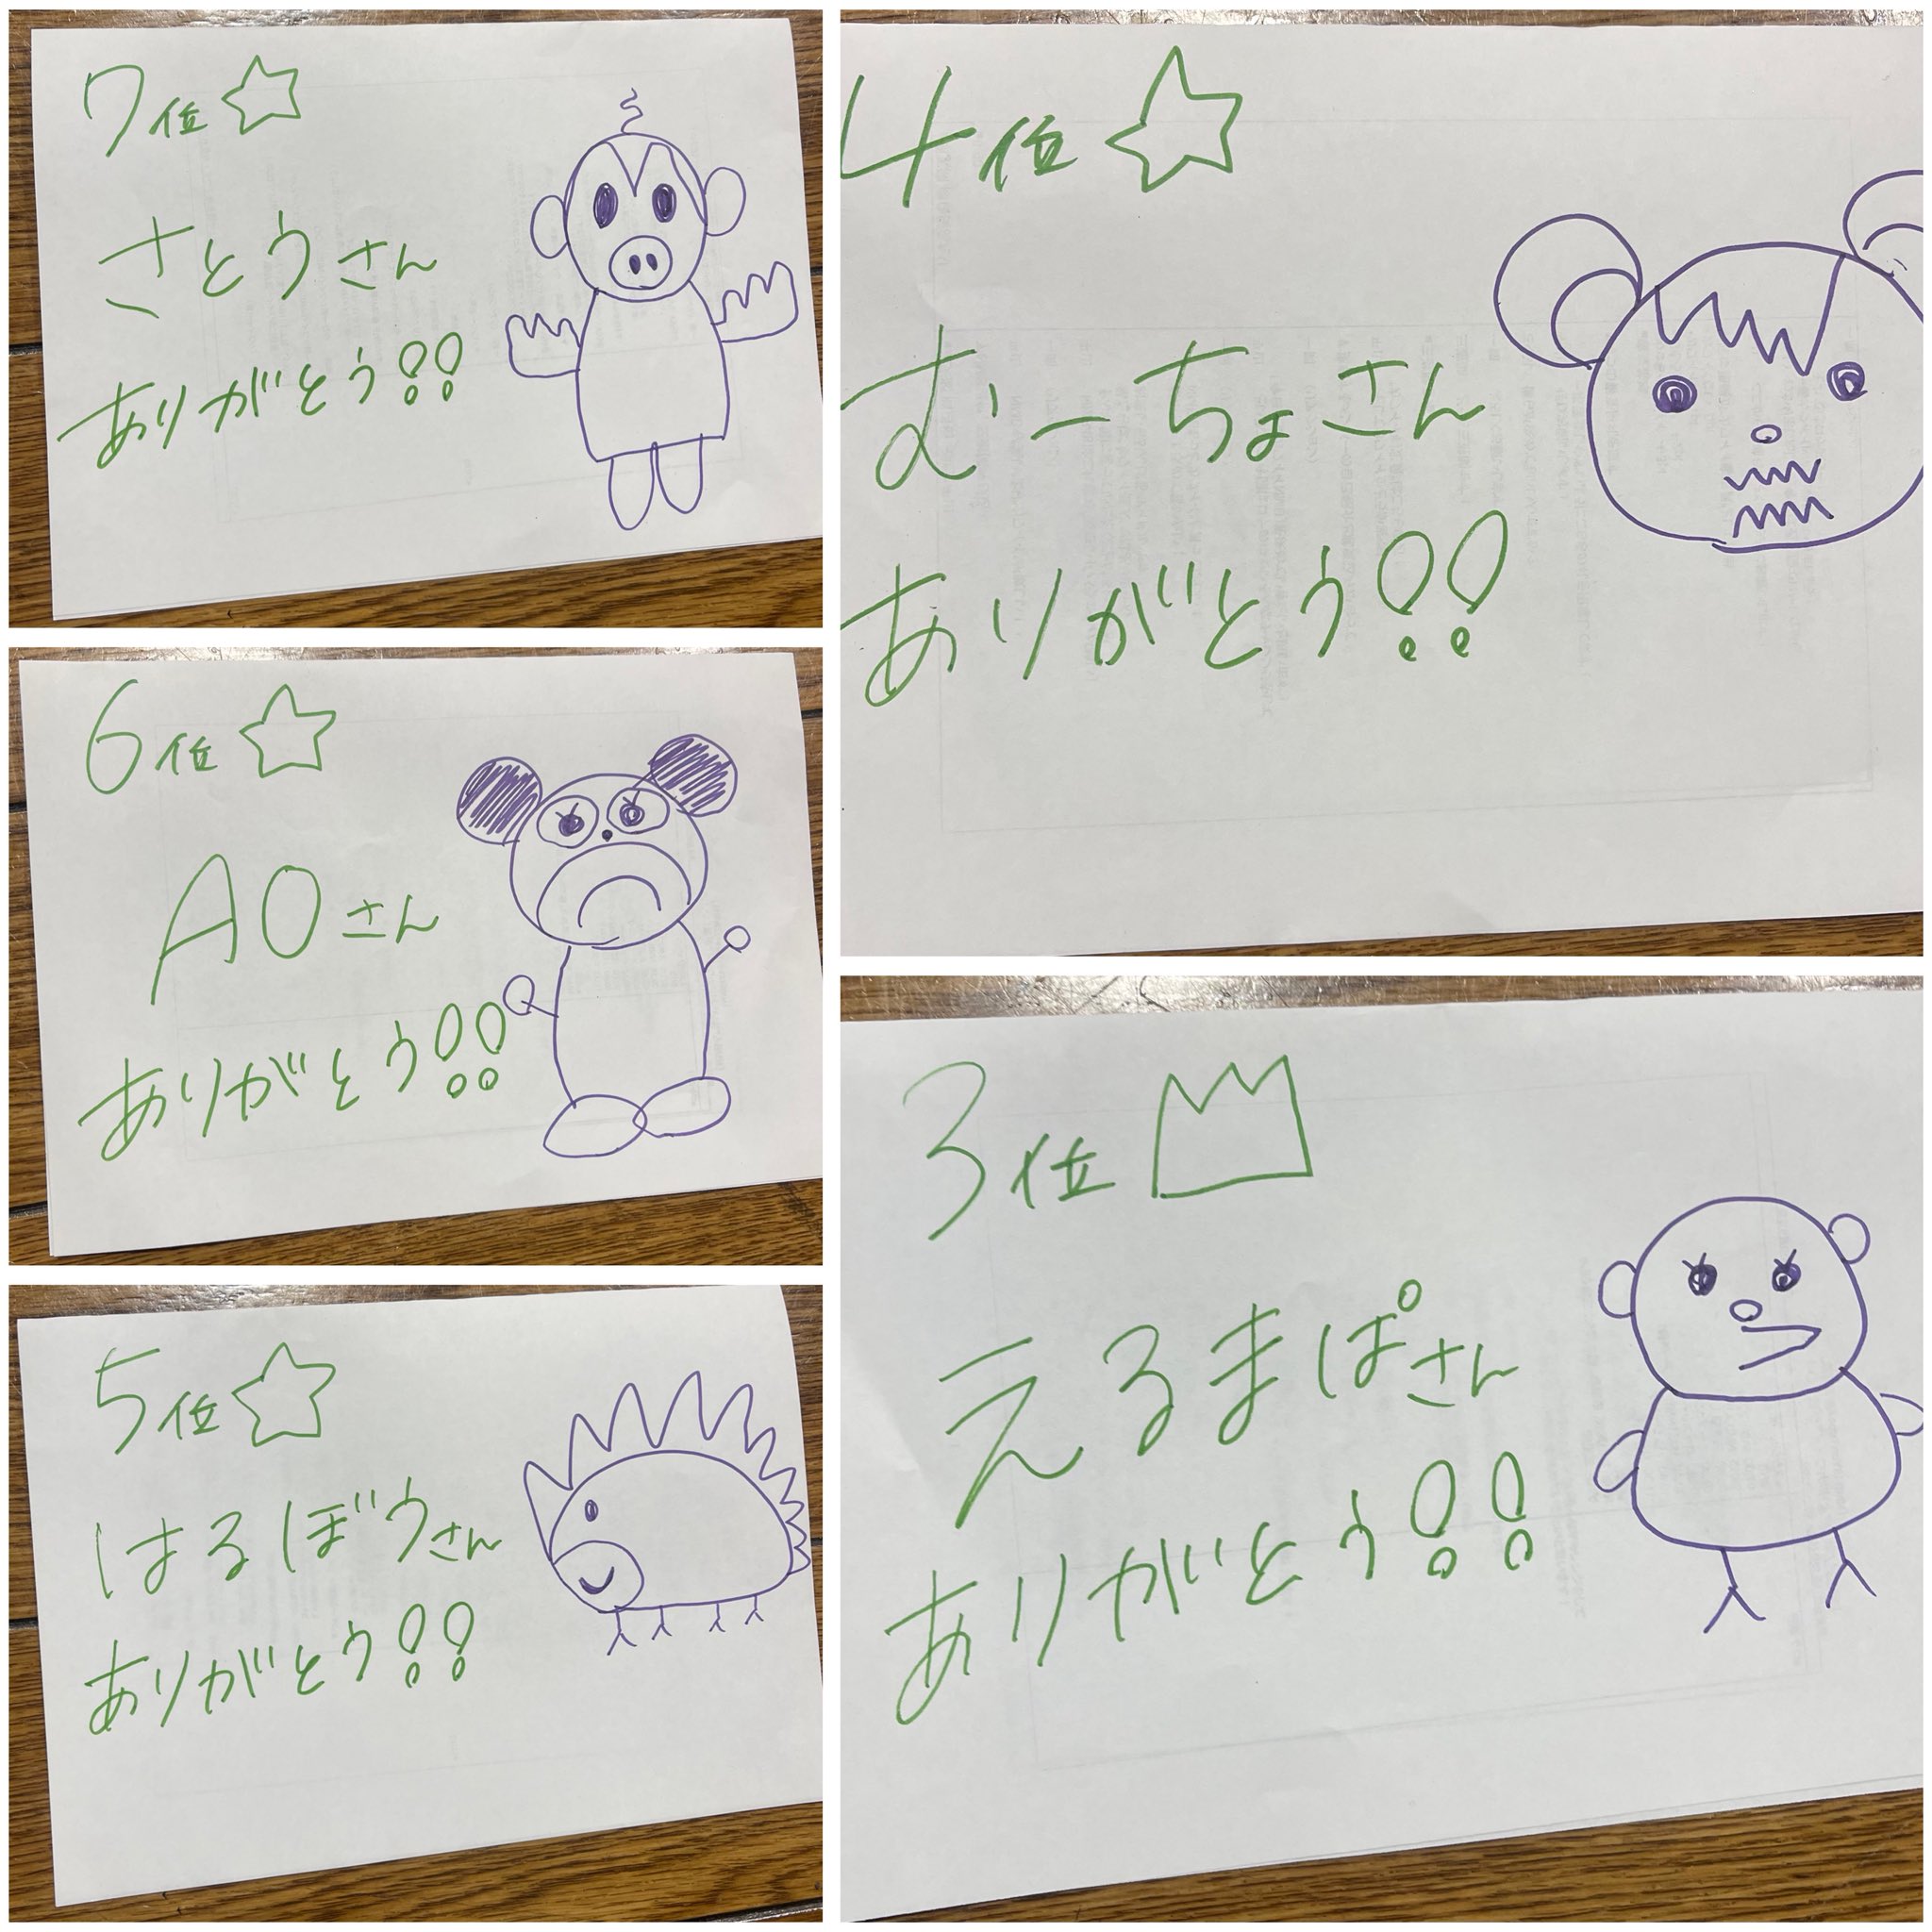 7位☆
さとうさん
ありがとう!!
6位☆
AOさん
ありがとう!!
5位☆
はるぼうさん
ありがとう!!
4位☆
むーちょさん
ありがとう!!
3位
えるまぱさん
ありがとう!!